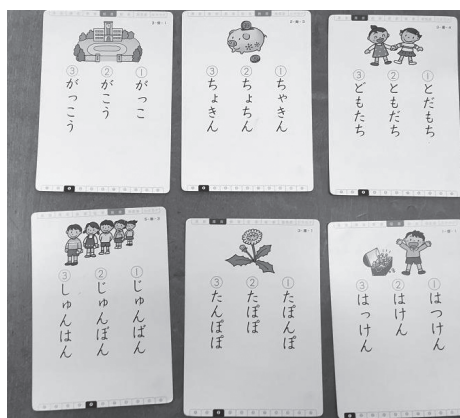 ①がっこ
②がこう
③がっこう
①ちゃきん
②ちょちん
③ちょきん
①とだもち
②ともだち
③どもたち
①じゅんばん
②じゅんぽん
③しゅんはん
①たぽんぽ
②たぽぽ
③たんぽぽ
①はつけん
②はけん
③はっけん